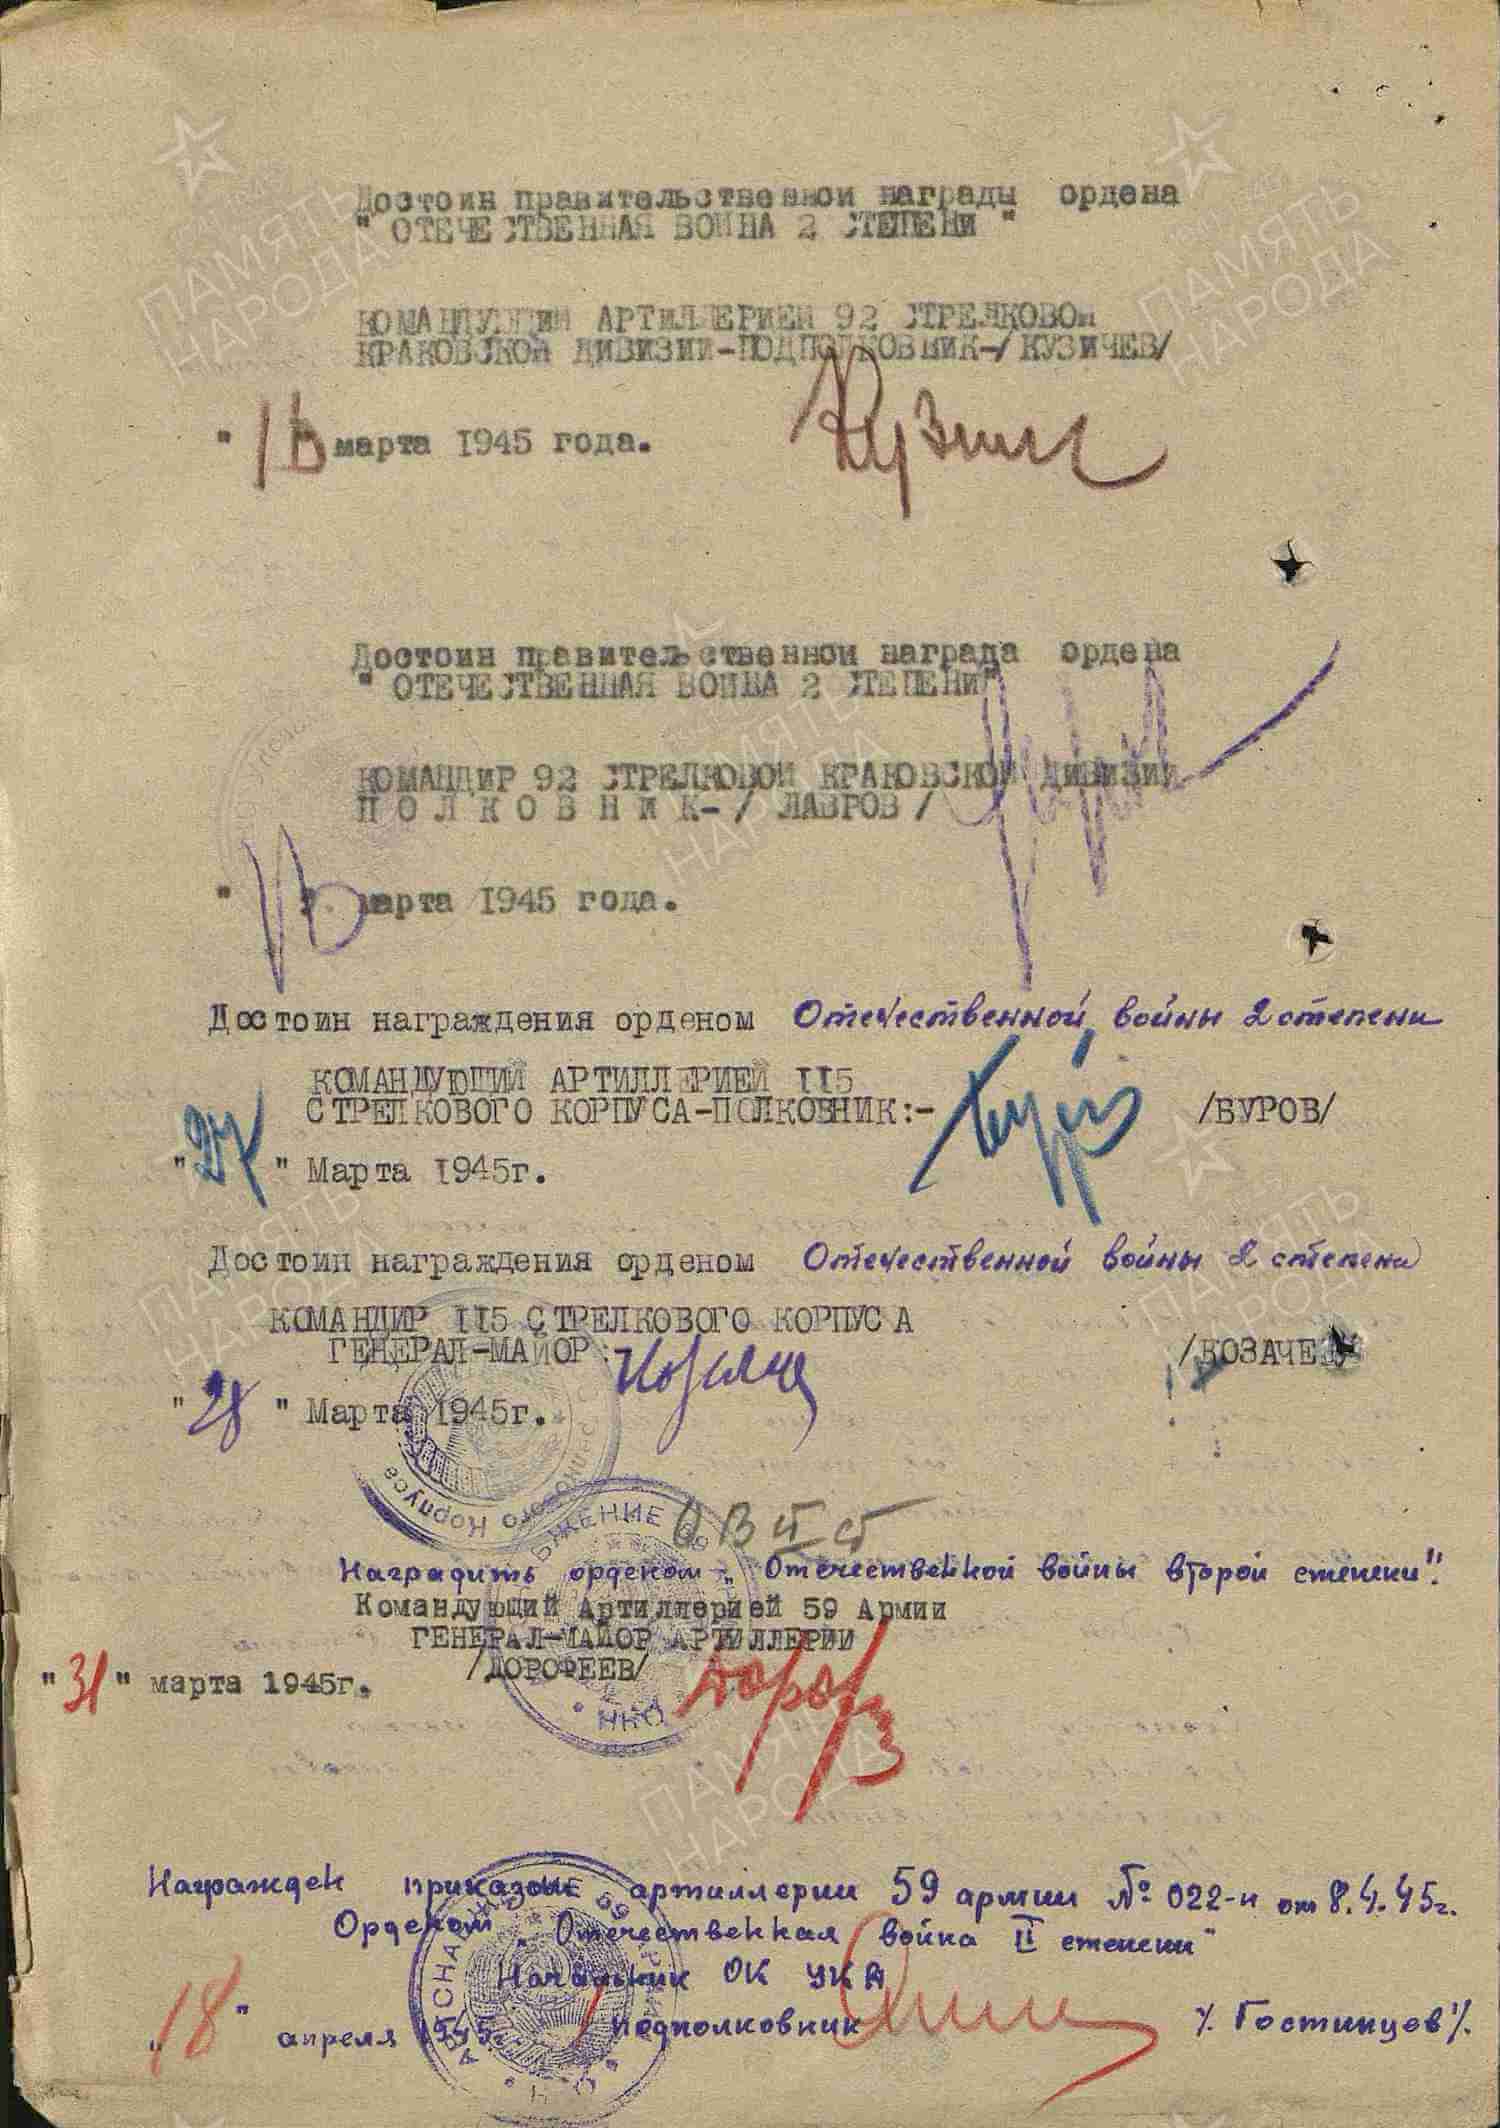 Достоин правительственной награды ордена
" ОТЕЧЕСТВЕННАЯ ВОЙНА 2 СТЕПЕНИ "
КОМАНДУЮЩИЙ АРТИЛЛЕРИЕЙ 92 СТРЕЛКОВОЙ
КРАКОВСКОЙ ДИВИЗИИ-ПОДПОЛКОВНИК-/КУЗИЧЕВ/
" марта 1945 года.
Достоин правительственной награда ордена
" ОТЕЧЕСТВЕННАЯ ВОЙНА 2 СТЕПЕНИ"
КОМАНДИР 92 СТРЕЛКОВОЙ КРАКОВСКОЙ ДИВИЗИИ
П О Л К О В Н И К-/ ЛАВРОВ /
" марта 1945 года.
Достоин награждения орденом Отечественной войны 2 степени
КОМАНДУЮЩИЙ АРТИЛЛЕРИЕЙ II5
СТРЕЛКОВОГО КОРПУСА-ПОЛКОВНИК:- /БУРОВ/
"27" Марта 1945г.
Достоин награждения орденом Отечественной войны 2 степени
КОМАНДИР II5 СТРЕЛКОВОГО КОРПУСА
ГЕНЕРАЛ-МАЙОР: /КОЗАЧЕК/
"28" Марта 1945г.
ОВ II ст
Наградить орденом „Отечественной войны второй степени".
Командующий Артиллерией 59 Армии
ГЕНЕРАЛ-МАЙОР АРТИЛЛЕРИИ
/ДОРОФЕЕВ/
"31" марта 1945г.
Награжден приказом артиллерии 59 армии № 022-н от 8.4.45г.
Орденом „Отечественная война II степени"
Начальник ОК УКА
„18" апреля 1945г. подполковник /. Гостинцев/.
ПАМЯТЬ
НАРОДА